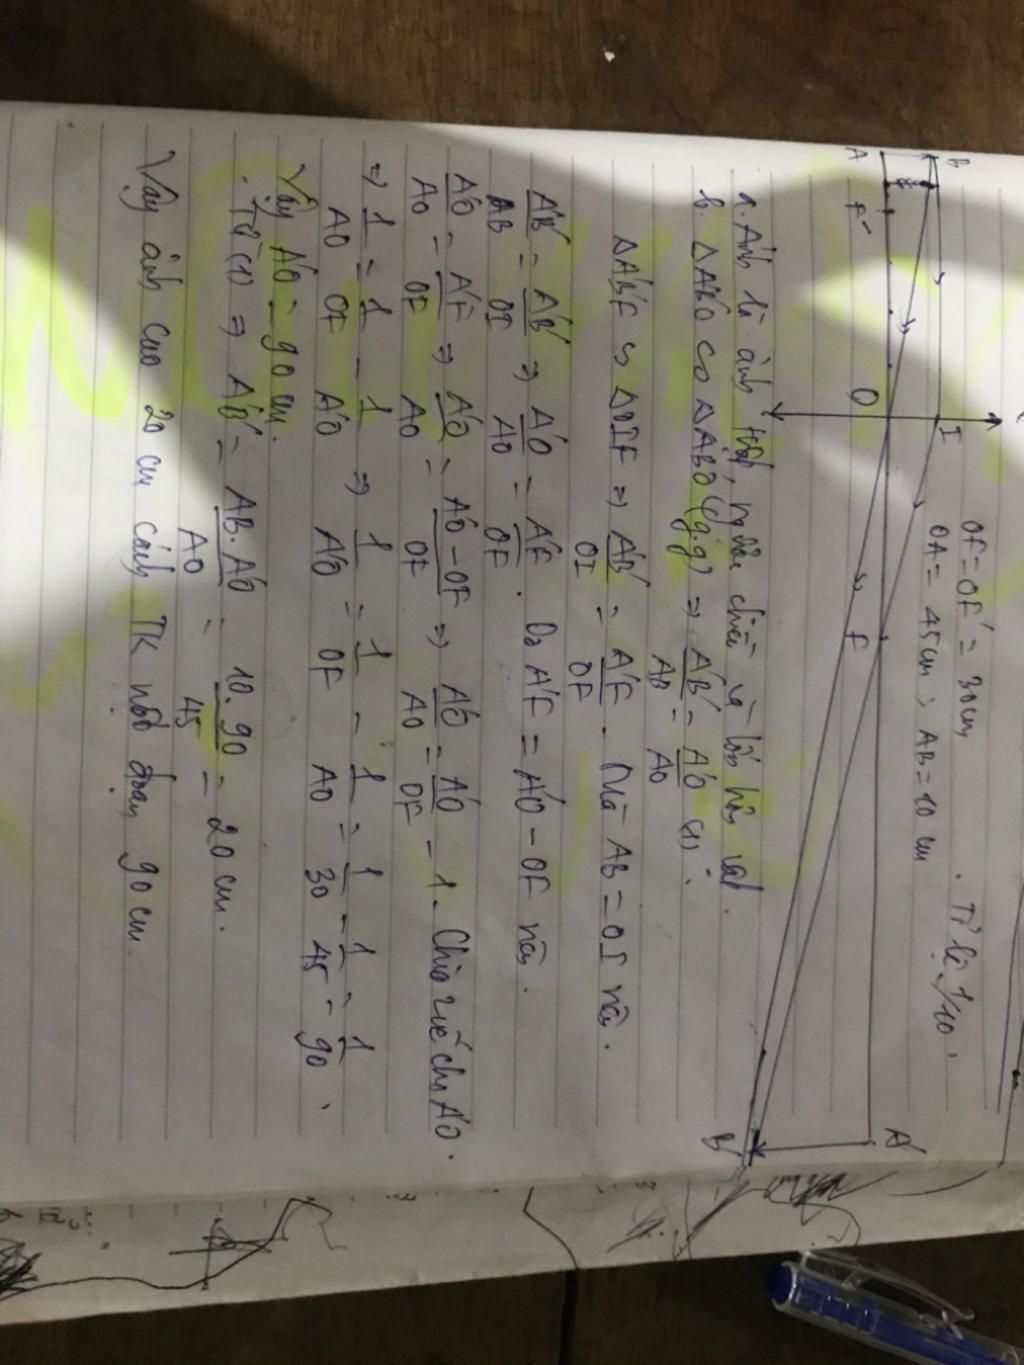 OF = OF' = 30cm
OA = 45cm ; AB = 10 cm . Tỉ lệ 1/10.
B I
A F' O F A'
B'
a. Ảnh là ảnh thật, ngược chiều và lớn hơn vật.
b. ΔA'B'O ∽ ΔABO (g.g) ⇒ A'B'/AB = A'O/AO (1).
ΔA'B'F ∽ ΔOIF ⇒ A'B'/OI = A'F/OF . Mà AB = OI nên.
A'B'/AB = A'B'/OI ⇒ A'O/AO = A'F/OF . Do A'F = A'O - OF nên.
A'O/AO = A'F/OF ⇒ A'O/AO = A'O - OF/OF ⇒ A'O/AO = A'O/OF - 1. Chia 2 vế cho A'O.
⇒ 1/AO = 1/OF - 1/A'O ⇒ 1/A'O = 1/OF - 1/AO = 1/30 - 1/45 = 1/90 .
Vậy A'O = 90 cm.
. Từ (1) ⇒ A'B' = AB.A'O/AO = 10.90/45 = 20 cm.
Vậy ảnh cao 20 cm cách TK một đoạn 90 cm.